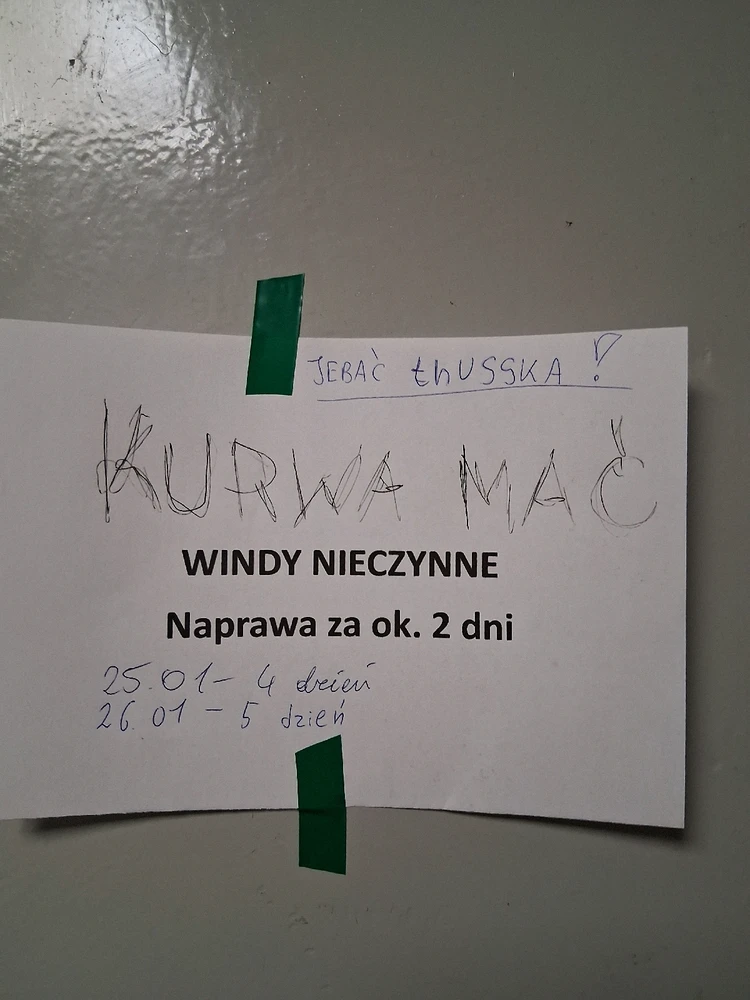 JEBAĆ thUSSKA !
KURWA MAĆ
WINDY NIECZYNNE
Naprawa za ok. 2 dni
25.01 - 4 dzień
26.01 - 5 dzień